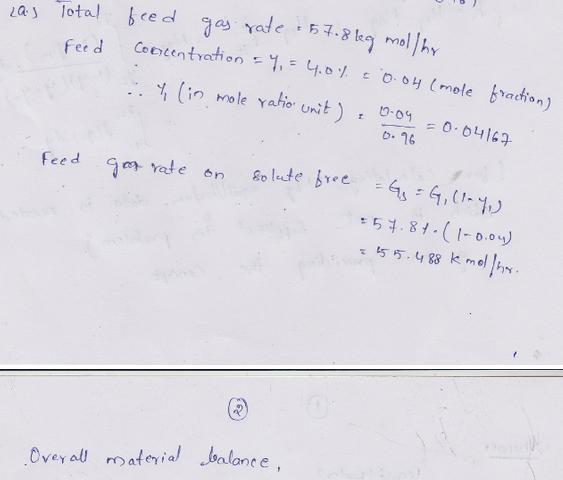 2a.) Total feed gas rate = 57.8 kg mol/hr
Feed Concentration = y₁ = 4.0% = 0.04 (mole fraction)
∴ Y₁ (in mole ratio unit) = 0.04/0.96 = 0.04167
Feed gas rate on solute free = Gs = G₁(1-y₁)
= 57.8%.(1-0.04)
= 55.488 K mol/hr.
2
Overall material balance,